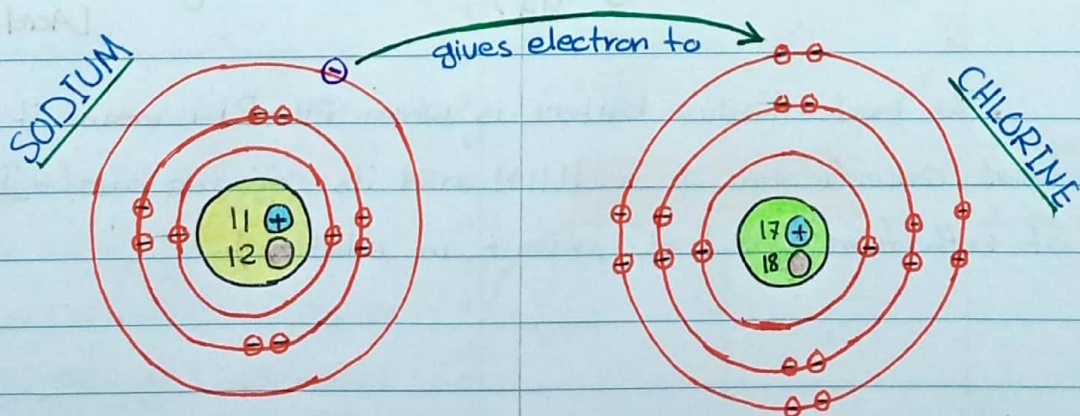 SODIUM
gives electron to
CHLORINE
11 +
12
17 +
18